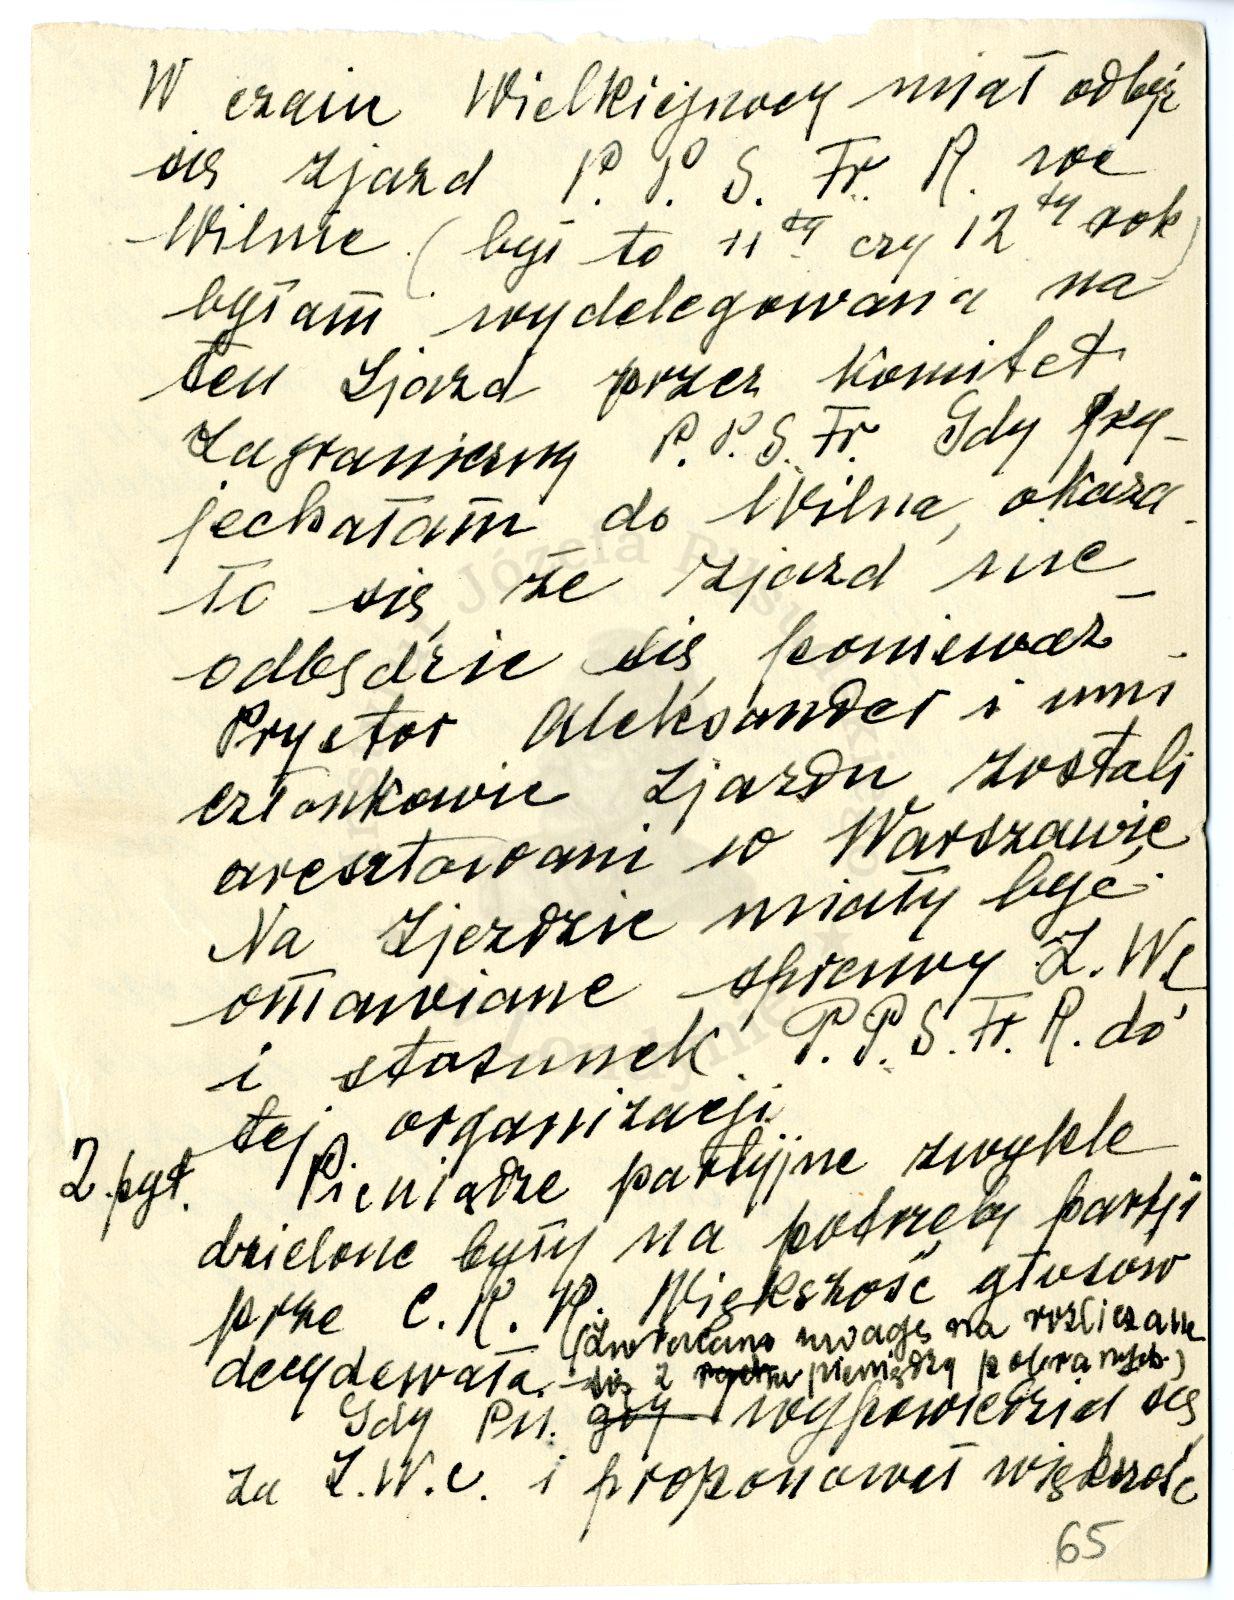 W czasie Wielkiejnocy miał odbyć
się zjazd P. P. S. Fr. R. we
Wilnie (był to 11ty czy 12ty rok)
byłam wydelegowana na
ten Zjazd przez Komitet
Zagraniczny P.P.S. Fr. Gdy przy-
jechałam do Wilna, okaza-
ło się, że zjazd nie
odbędzie się, ponieważ
Prystor Aleksander i inni
członkowie Zjazdu zostali
aresztowani w Warszawie
Na Zjeździe miały być
omawiane sprawy Z. W C
i stosunek P. P. S. Fr. R. do
tej organizacji.
2. pyt. Pieniądze partyjne zwykle
dzielone były na potrzeby partji
prze C. K. R. Większość głosów
decydowała. (Zwracano uwagę na rozliczanie
się z pieniędzy pobranych.)
Gdy Pił. gdy wypowiedział się
za Z. W. C. i proponował większość
65